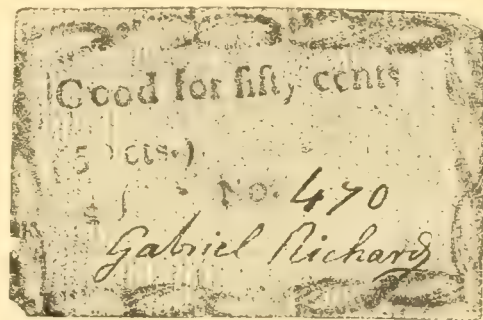 Good for fifty cents
(5 cts.)
No. 470
Gabriel Richard